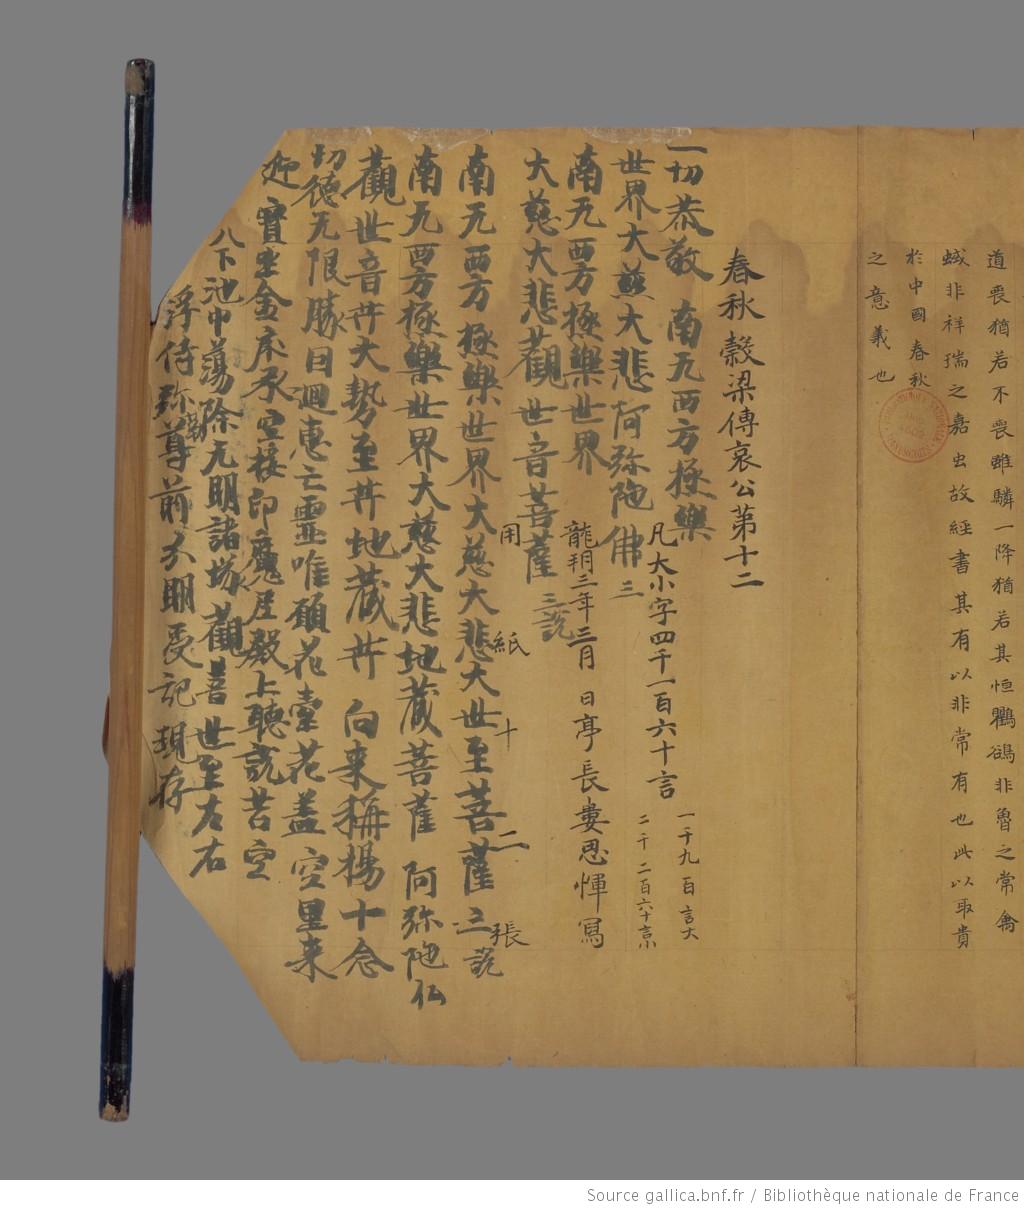 道喪猶若不喪雖麟一降猶若其恒鸜鵒非魯之常禽
蜮非祥瑞之嘉虫故經書其有以非常有也此以取貴
於中國春秋
之意義也
春秋穀梁傳哀公第十二
凡大小字四千一百六十言
一千九百言大
二千二百六十言小
龍朔三年三月 日亭長婁思惲寫
用紙十二張
一切恭敬 南无西方極樂
世界大慈大悲阿弥陁佛三
南无西方極樂世界
大慈大悲觀世音菩薩三説
南无西方極樂世界大慈大悲大世至菩薩三説
南无西方極樂世界大慈大悲地蔵菩薩 阿弥陁仏
觀世音菩大勢至菩地蔵菩 向来稱楊十念
切德无限勝因迴惠亡靈唯願花臺花盖空里来
迎寶座金床承空接印魔居殿上聽説苦空
八下池中蕩除无明諸垢觀音世至左右
浮侍弥勒尊前分明受記現存
Source gallica.bnf.fr / Bibliothèque nationale de France